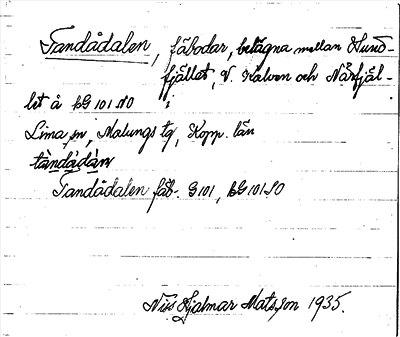 Tandådalen, fäbodar, belägna mellan Hund-
fjället, V. Kalven och Närfjäl-
let å bG 101 NO
Lima sn, Malungs tg, Kopp. län
tàndådàn
Tandådalen fäb. G 101, bG 101 SO
Nils Hjalmar Matsson 1935.